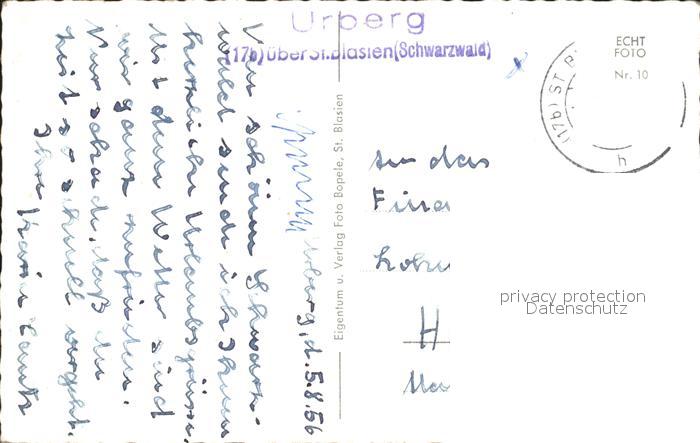 Urberg
(17b) über St. Blasien (Schwarzwald)
ECHT
FOTO
Nr. 10
(17b) ST. B
h
Eigentum u. Verlag Foto Bopele, St. Blasien
Urberg, d. 5.8.56
Vom schönen Schwarz-
wald sende ich Ihnen
herzliche Urlaubsgrüsse.
Mit dem Wetter sind
wir ganz zufrieden.
Nur schade, daß die
Zeit so schnell vergeht.
Ihre
An das
Firma
H
privacy protection
Datenschutz